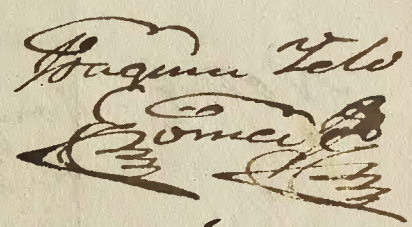 Joaquim Zelo
Gomes